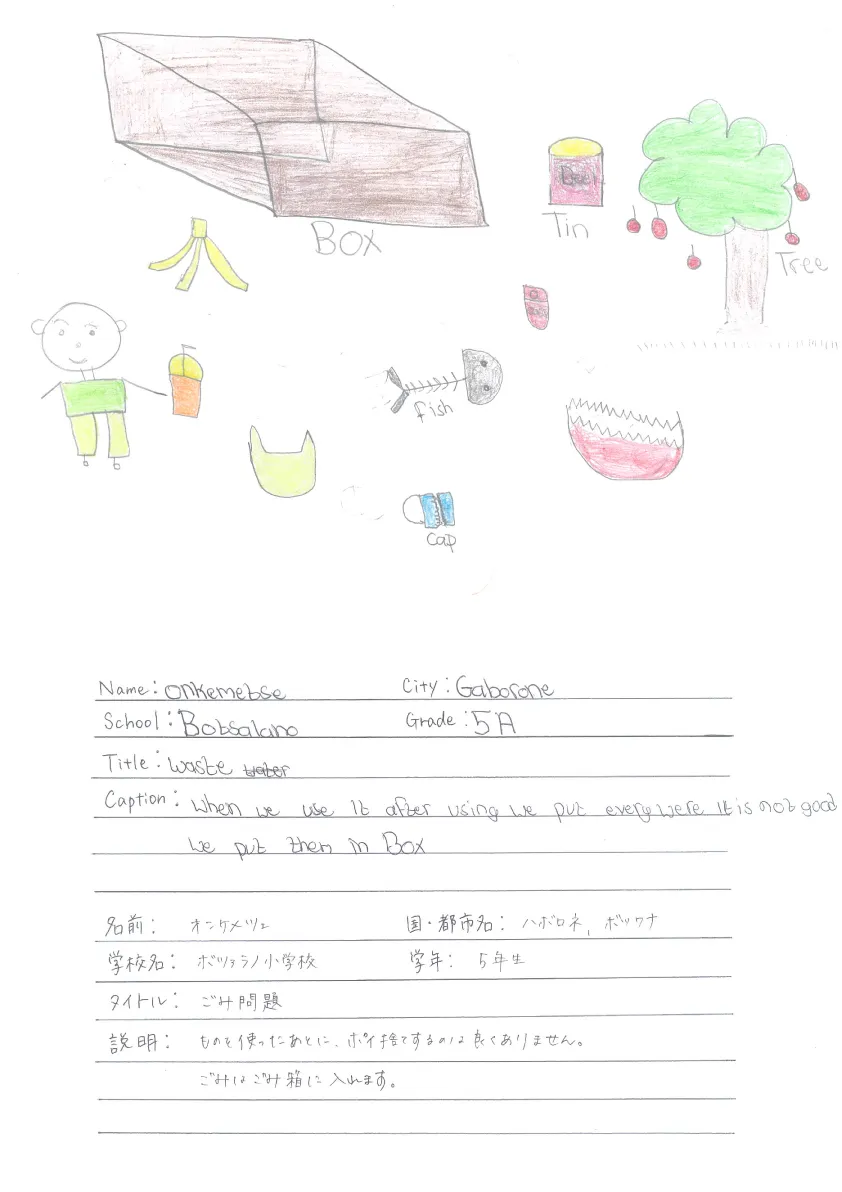 BOX
Tin
Tree
fish
cap
Name: Onkemetse City: Gaborone
School: Botsalano Grade: 5A
Title: waste water
Caption: when we use it after using we put every were it is not good
we put them in Box
名前: オンケメツェ 国・都市名: ハボロネ, ボツワナ
学校名: ボツァラノ小学校 学年: 5年生
タイトル: ごみ問題
説明: ものを使ったあとに、ポイ捨てするのは良くありません。
ごみはごみ箱に入れます。